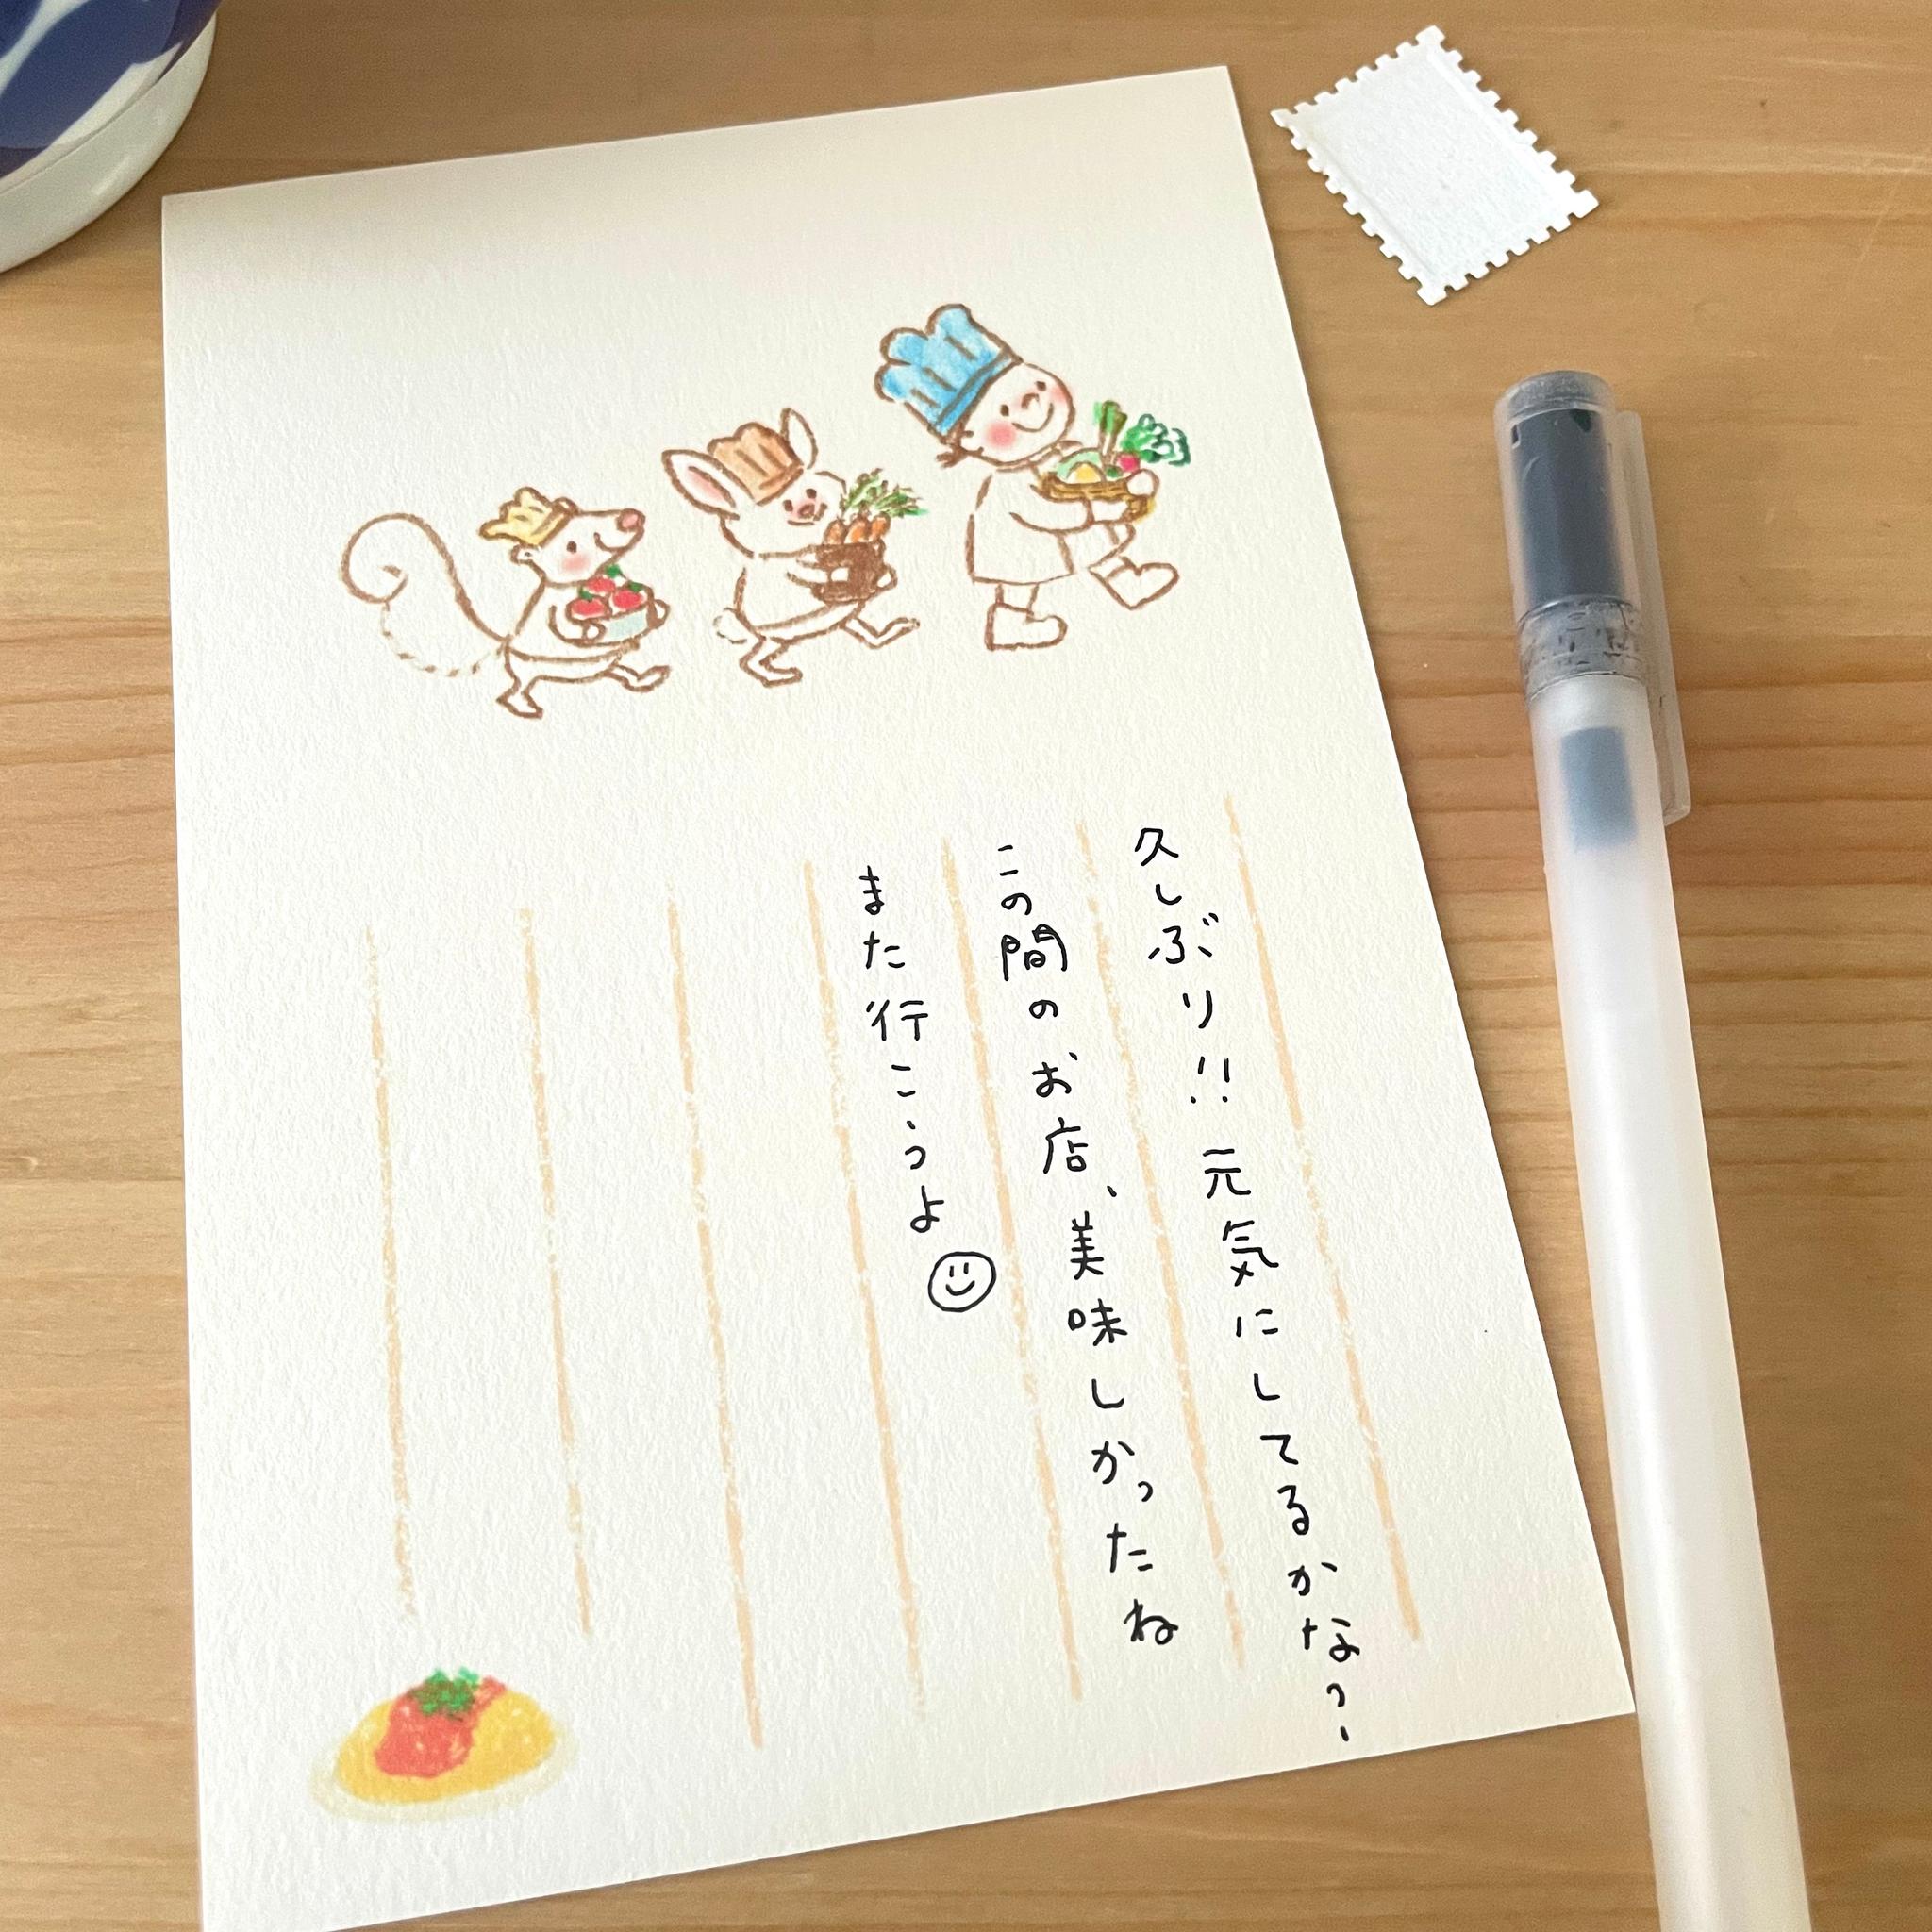 久しぶり!! 元気にしてるかなっ-
この間のお店、美味しかったね
また行こうよ